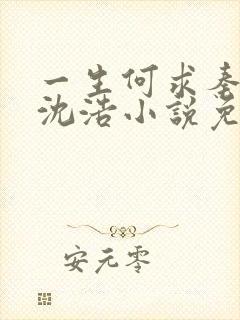 一生何求秦
沈浩小説免
安元零